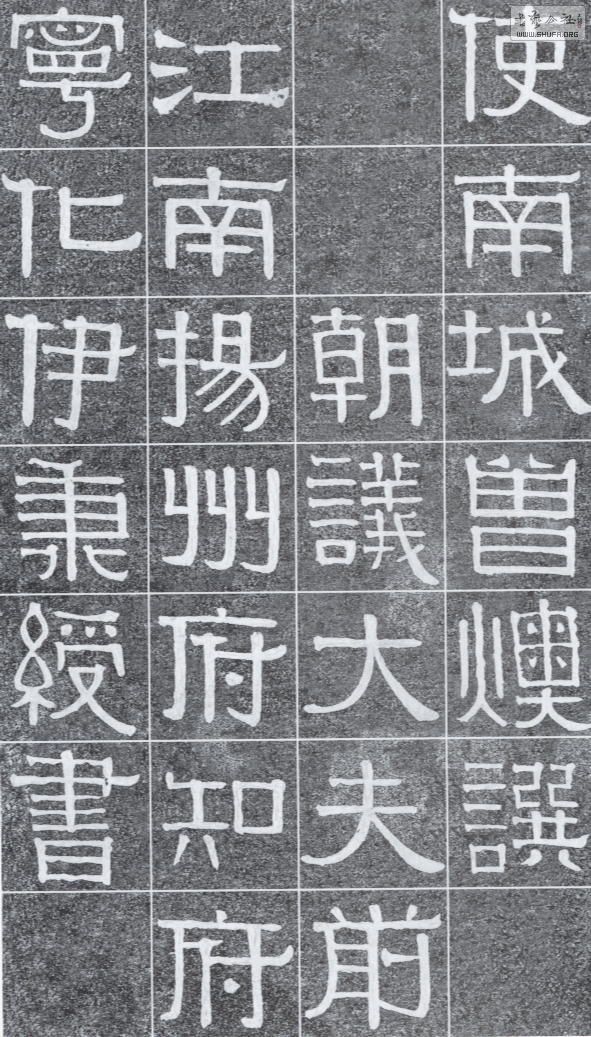 使南城曾燠譔
朝議大夫前
江南揚州府知府
寧化伊秉綬書
WWW.SHUFA.ORG